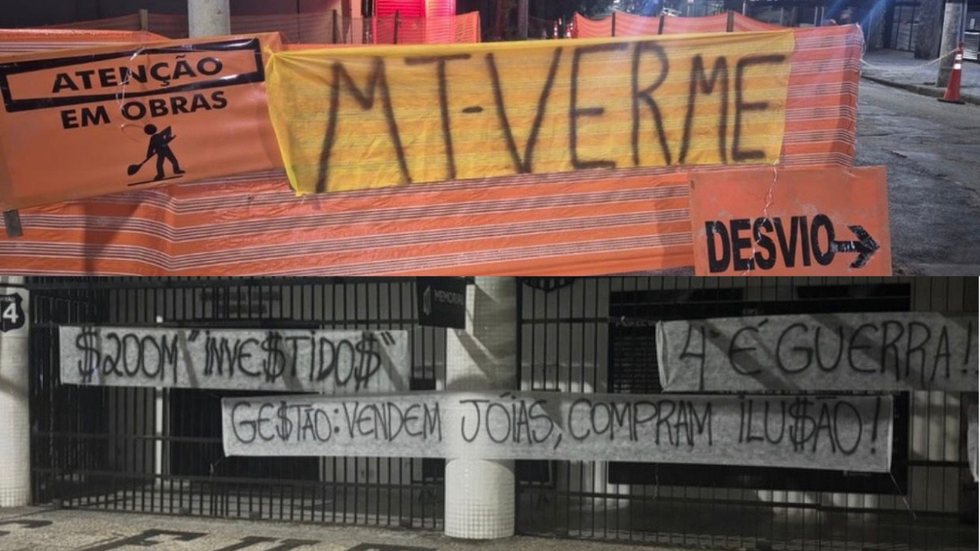 ATENÇÃO
EM OBRAS
MT-VERME
DESVIO
4
MEMORIAL
$200M "INVE$TIDO$"
4ª É GUERRA!
GE$TÃO: VENDEM JÓIAS, COMPRAM ILU$ÃO!